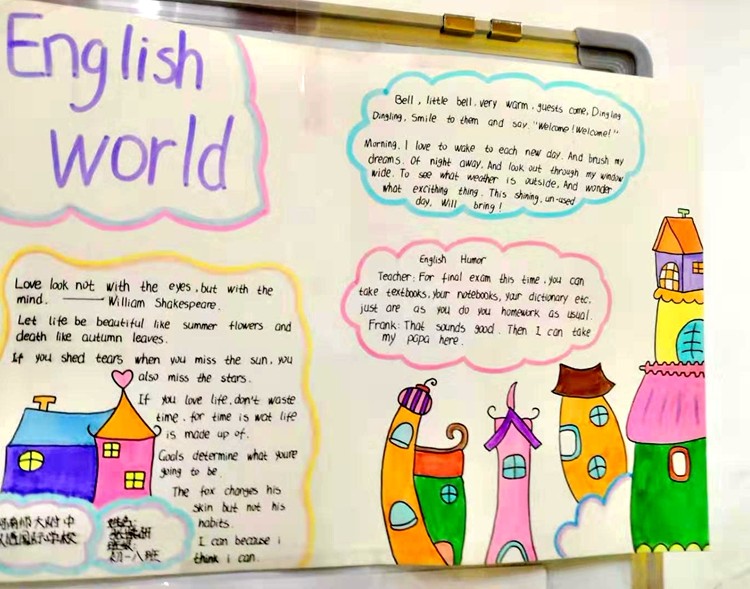 English
World
Love look not with the eyes, but with the
mind. —— William Shakespeare.
Let life be beautiful like summer flowers and
death like autumn leaves.
If you shed tears when you miss the sun, you
also miss the stars.
If you love life, don't waste
time, for time is wat life
is made up of.
Goals determine what you're
going to be.
The fox changes his
skin but not his
habits.
I can because i
think i can.
大附中
国际学校
初一八班
Bell, little bell, very warm, guests come, Dingling
Dingling, Smile to them and say. "Welcome! Welcome!"
Morning. I love to wake to each new day, And brush my
dreams. Of night away, And look out through my window
wide. To see what weather is outside, And wonder
what excithing thing. This shining, un-ased
day, Will bring!
English Humor
Teacher: For final exam this time, you can
take textbooks, your notebooks, your dictionary etc,
just are as you do you homework as usual.
Frank: That sounds good. Then I can take
my papa here.